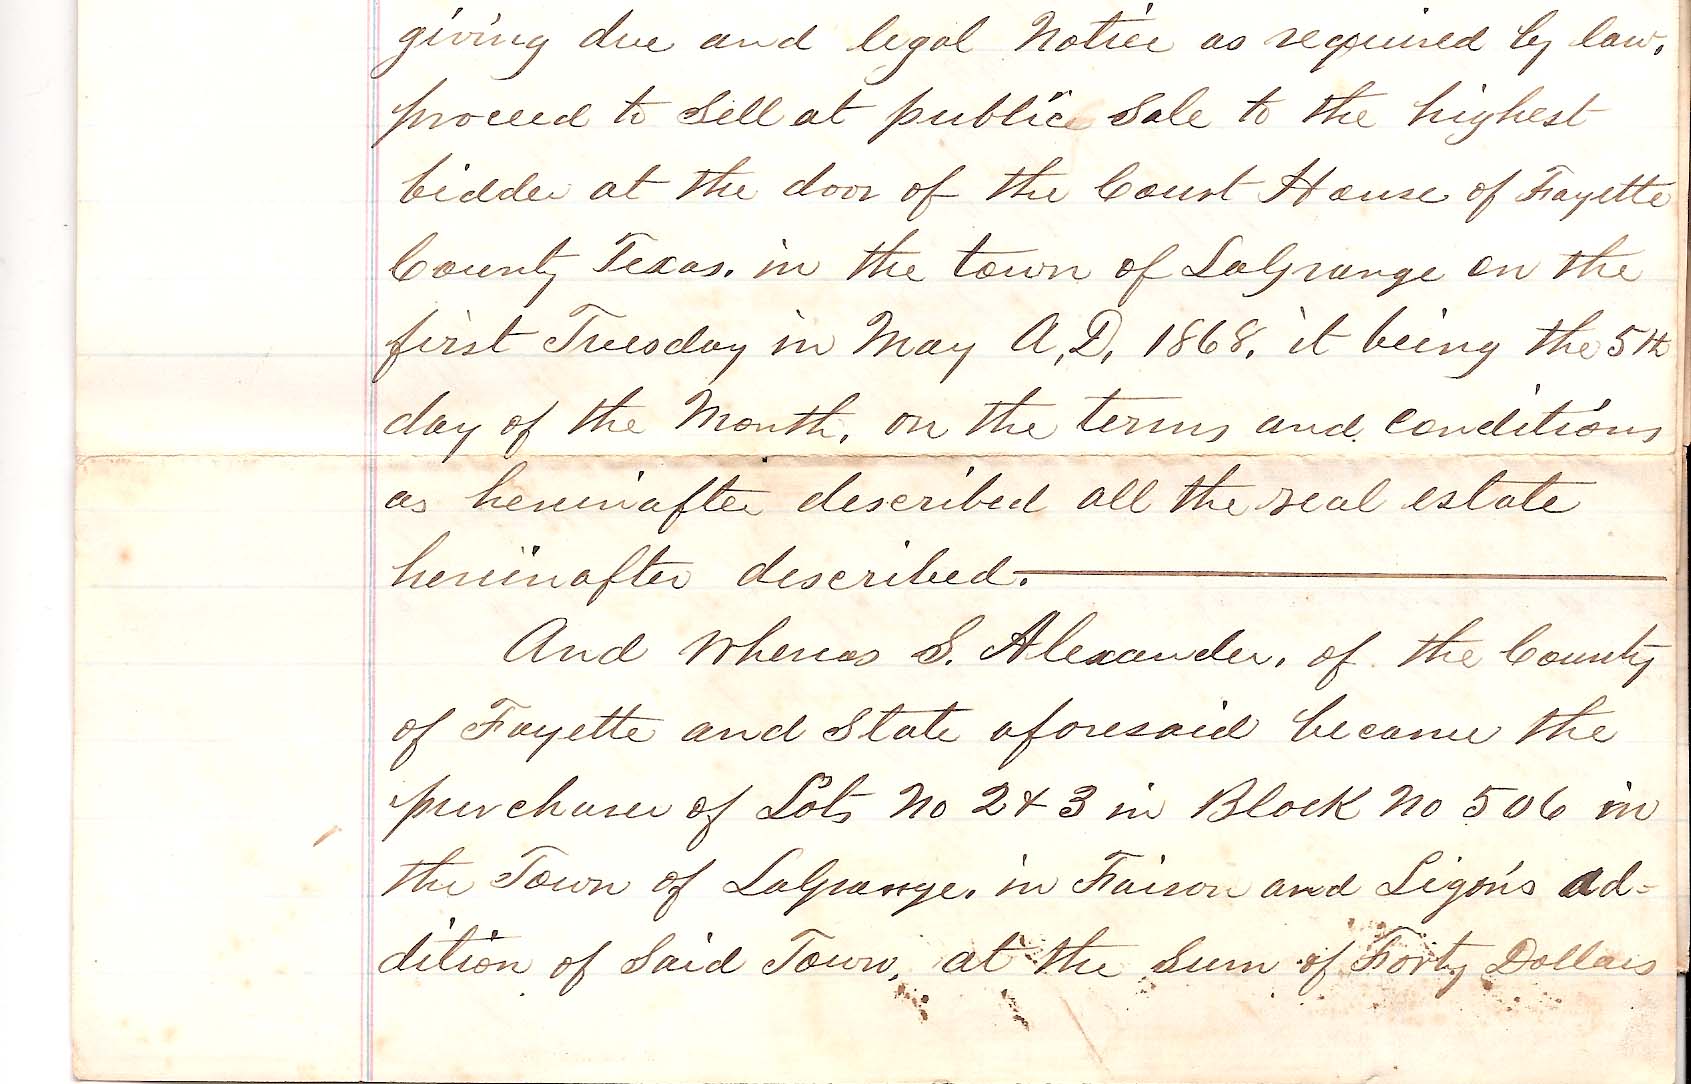 giving due and legal Notice as required by law,
proceed to Sell at public Sale to the highest
bidder at the door of the Court House of Fayette
County Texas. in the town of LaGrange on the
first Tuesday in May A,D, 1868. it being the 5th
day of the Month, on the terms and conditions
as hereinafter described all the real estate
hereinafter described.
And Whereas S. Alexander, of the County
of Fayette and State aforesaid became the
purchaser of Lots No 2 & 3 in Block No 506 in
the Town of LaGrange. in Faison and Ligon's ad-
dition of Said Town, at the Sum of Forty Dollars